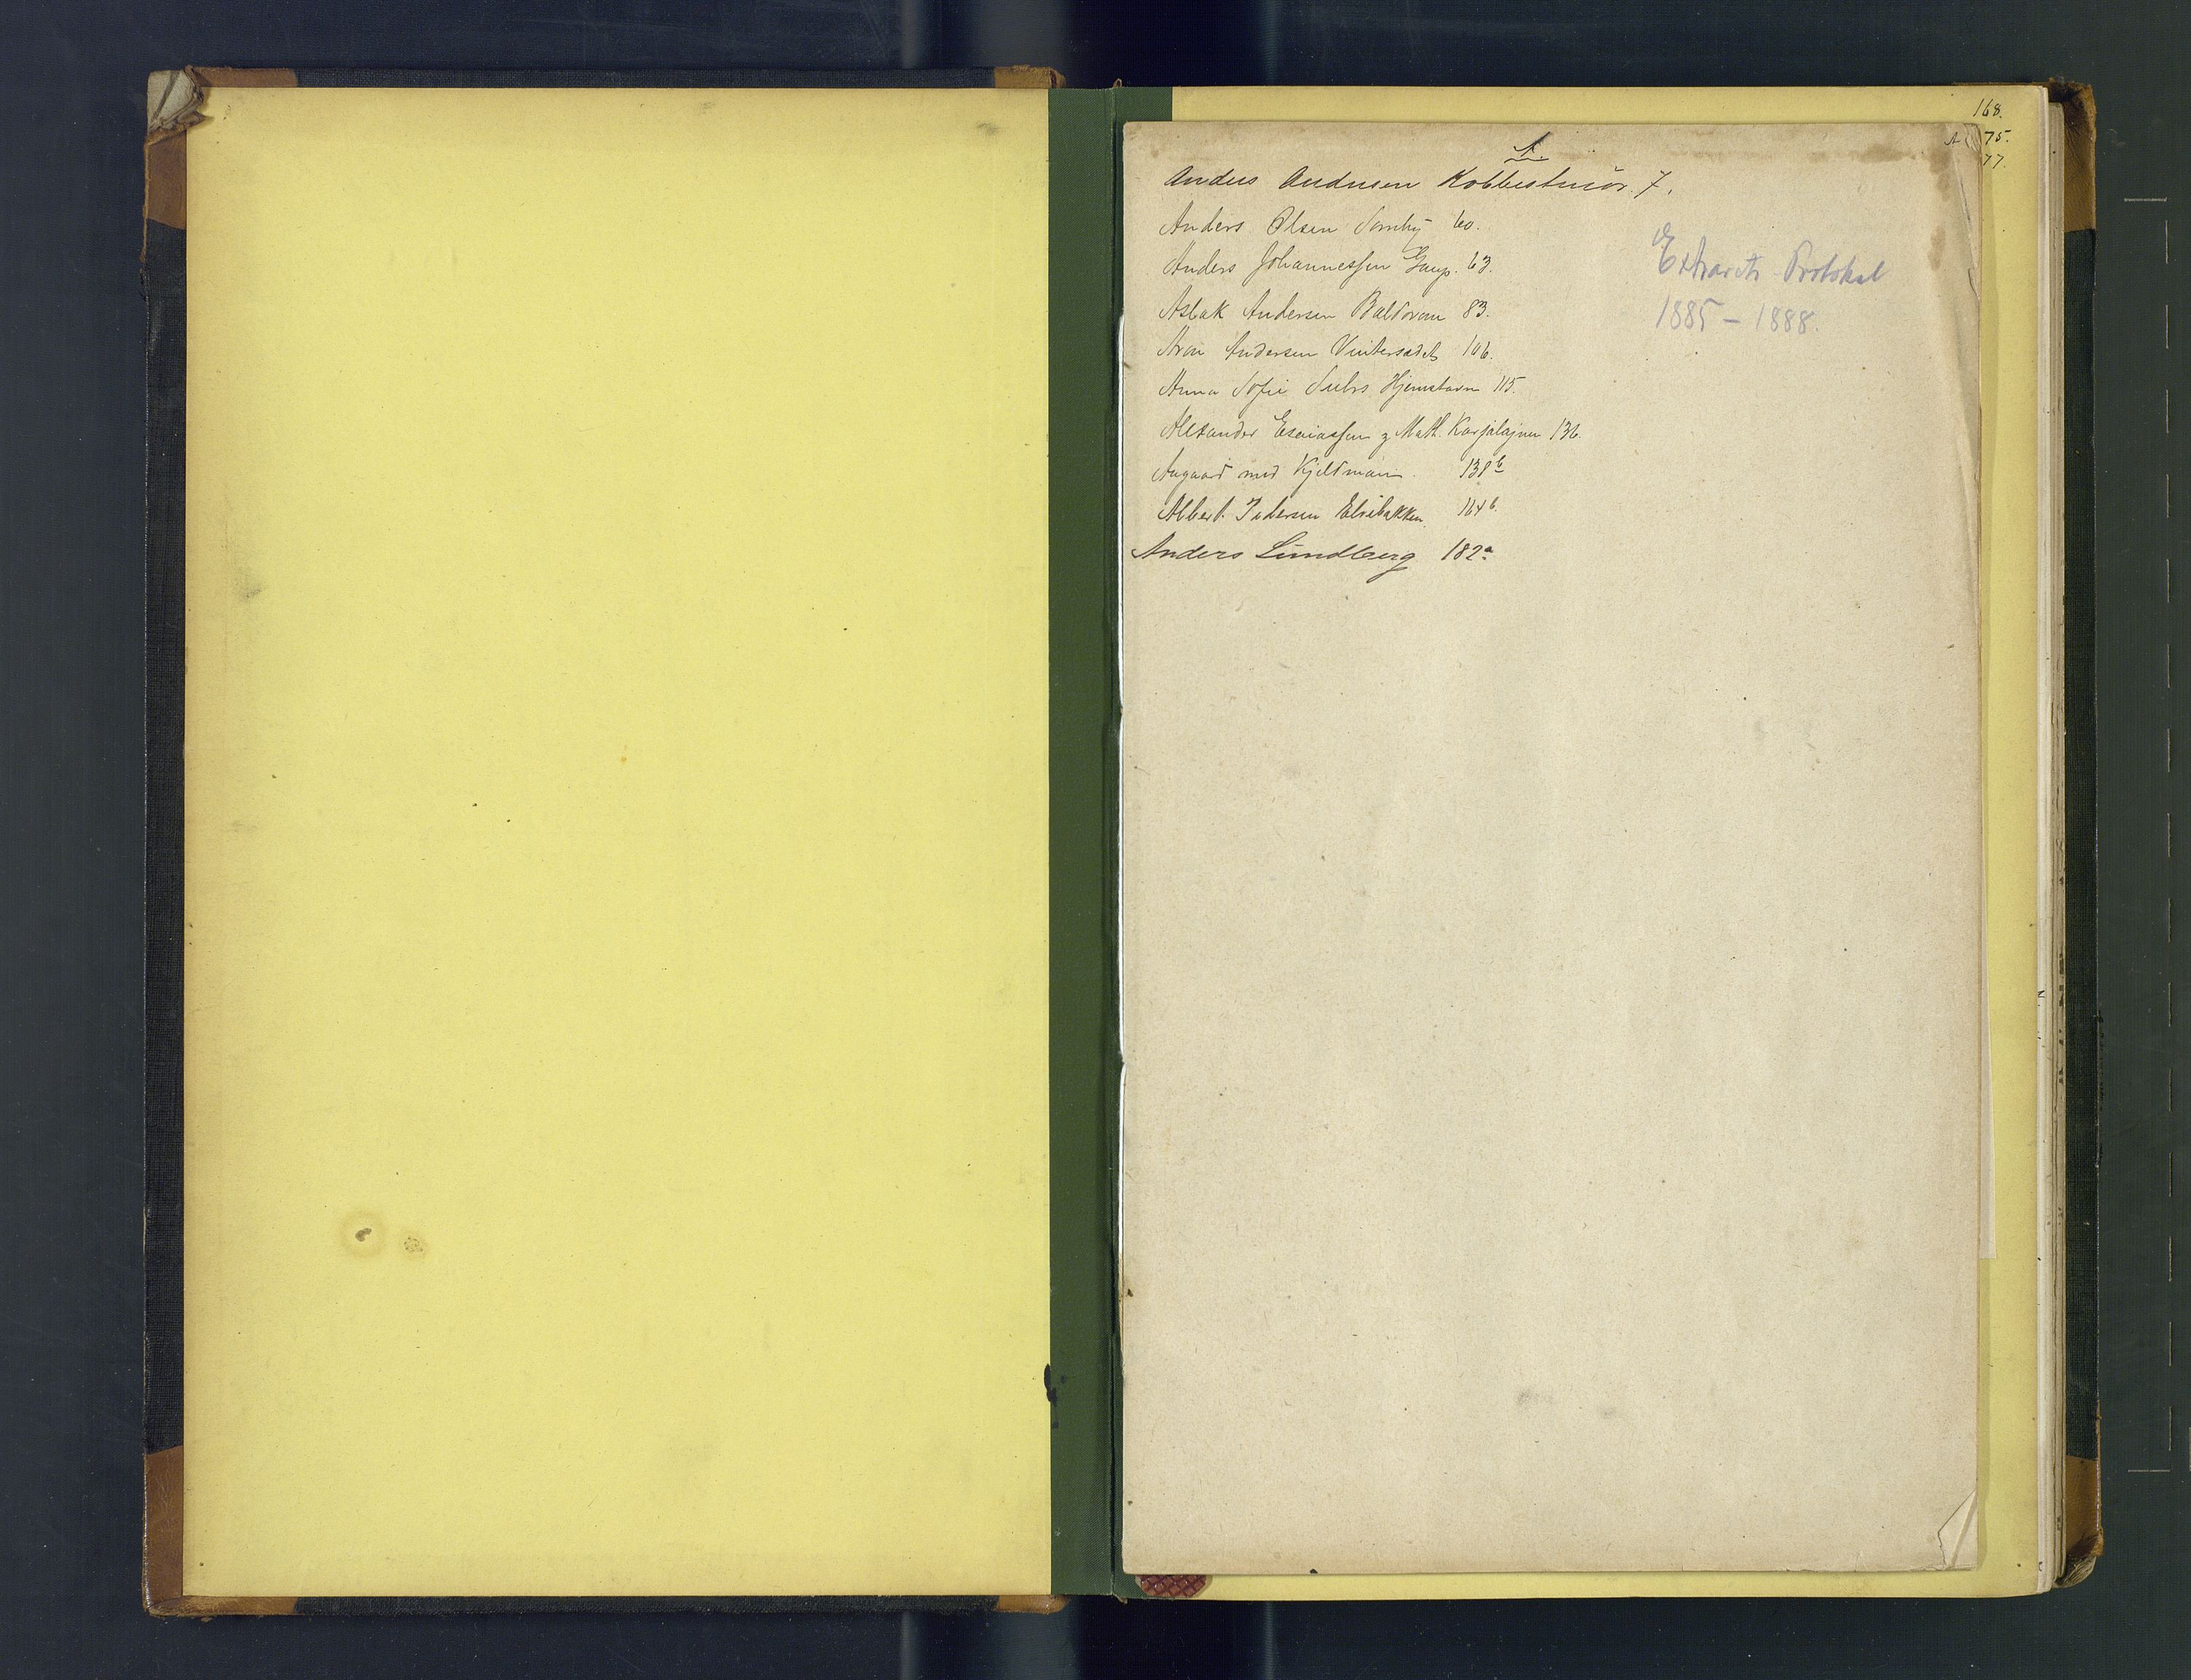 A.
Anders Andersen Kobbestuiør. 7.
Anders Olsen Somby 60.
Anders Johannesen Gaup. 63.
Aslak Andersen Baldovou 83.
Aron Andersen Vintersædet 106.
Anna Sofie Hjemstavn 115.
Alexander Esaiassen & Math. Karjalajnen 136.
Aagaard mod Kjeldmann. 138b
Albert Pedersen Elvebakken 164b.
Anders Lundberg 182a
Extraets-Protokol
1885 – 1888.
168.
A 75.
77.